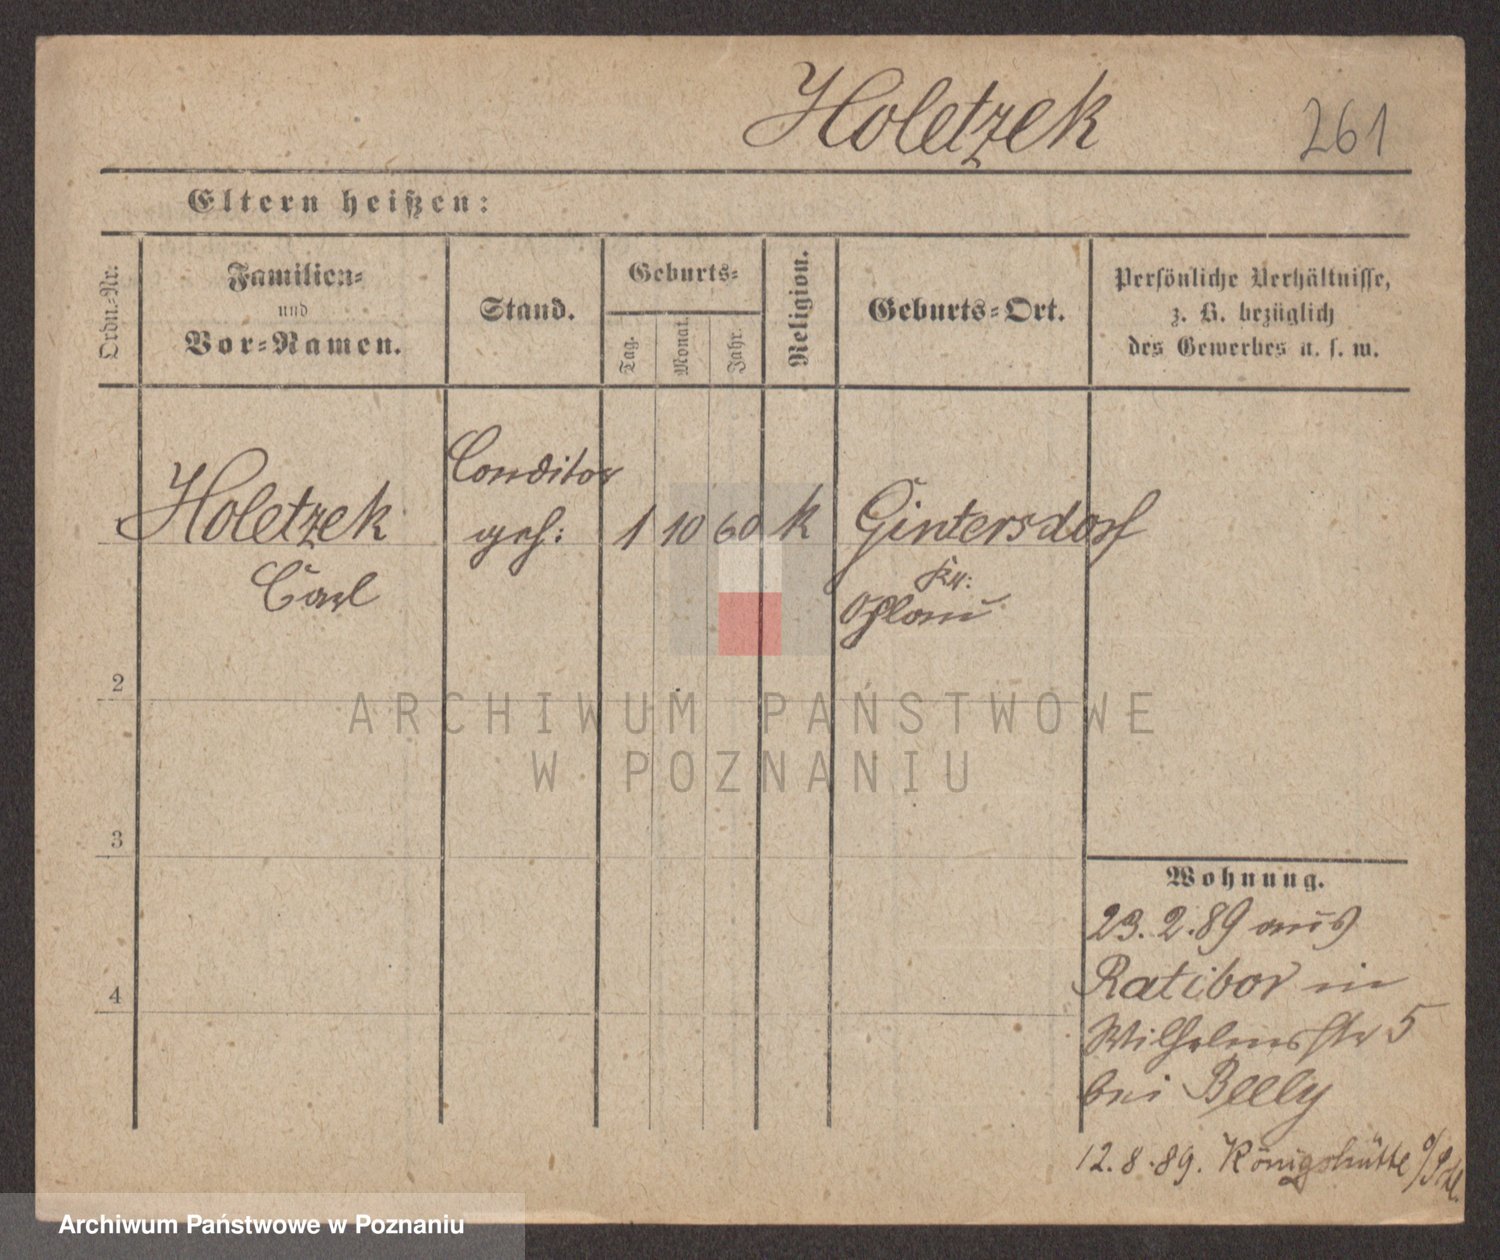 Holetzek 261
Eltern heißen:
Ordn.-Nr.
Familien-
und
Vor-Namen.
Stand.
Geburts-
Tag.
Monat.
Jahr.
Religion.
Geburts-Ort.
Persönliche Verhältnisse,
z. B. bezüglich
des Gewerbes u. s. w.
Conditor
Holetzek geh: 1 10 60 k Gintersdorf
Carl
Kr:
Ohlau
2
3
4
Wohnung.
23.2.89 aus
Ratibor in
Wilhelmsstr 5
bei Beely
12.8.89. Königshütte o/Schl.
ARCHIWUM PAŃSTWOWE
W POZNANIU
Archiwum Państwowe w Poznaniu